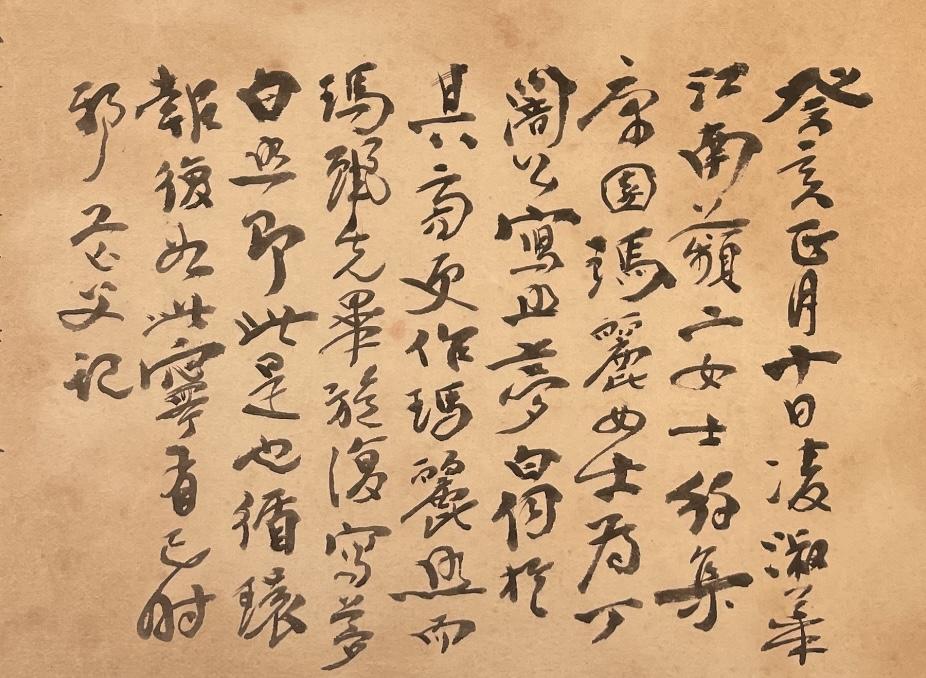 癸亥正月十日凌淑華
江南蘋二女士約集
康園瑪麗女士為丁
闇公寫照王夢白伺於
其旁更作瑪麗照而
瑪麗先畢旋復寫夢
白照即此是也循環
報復如此寧有已時
邪 芒父記